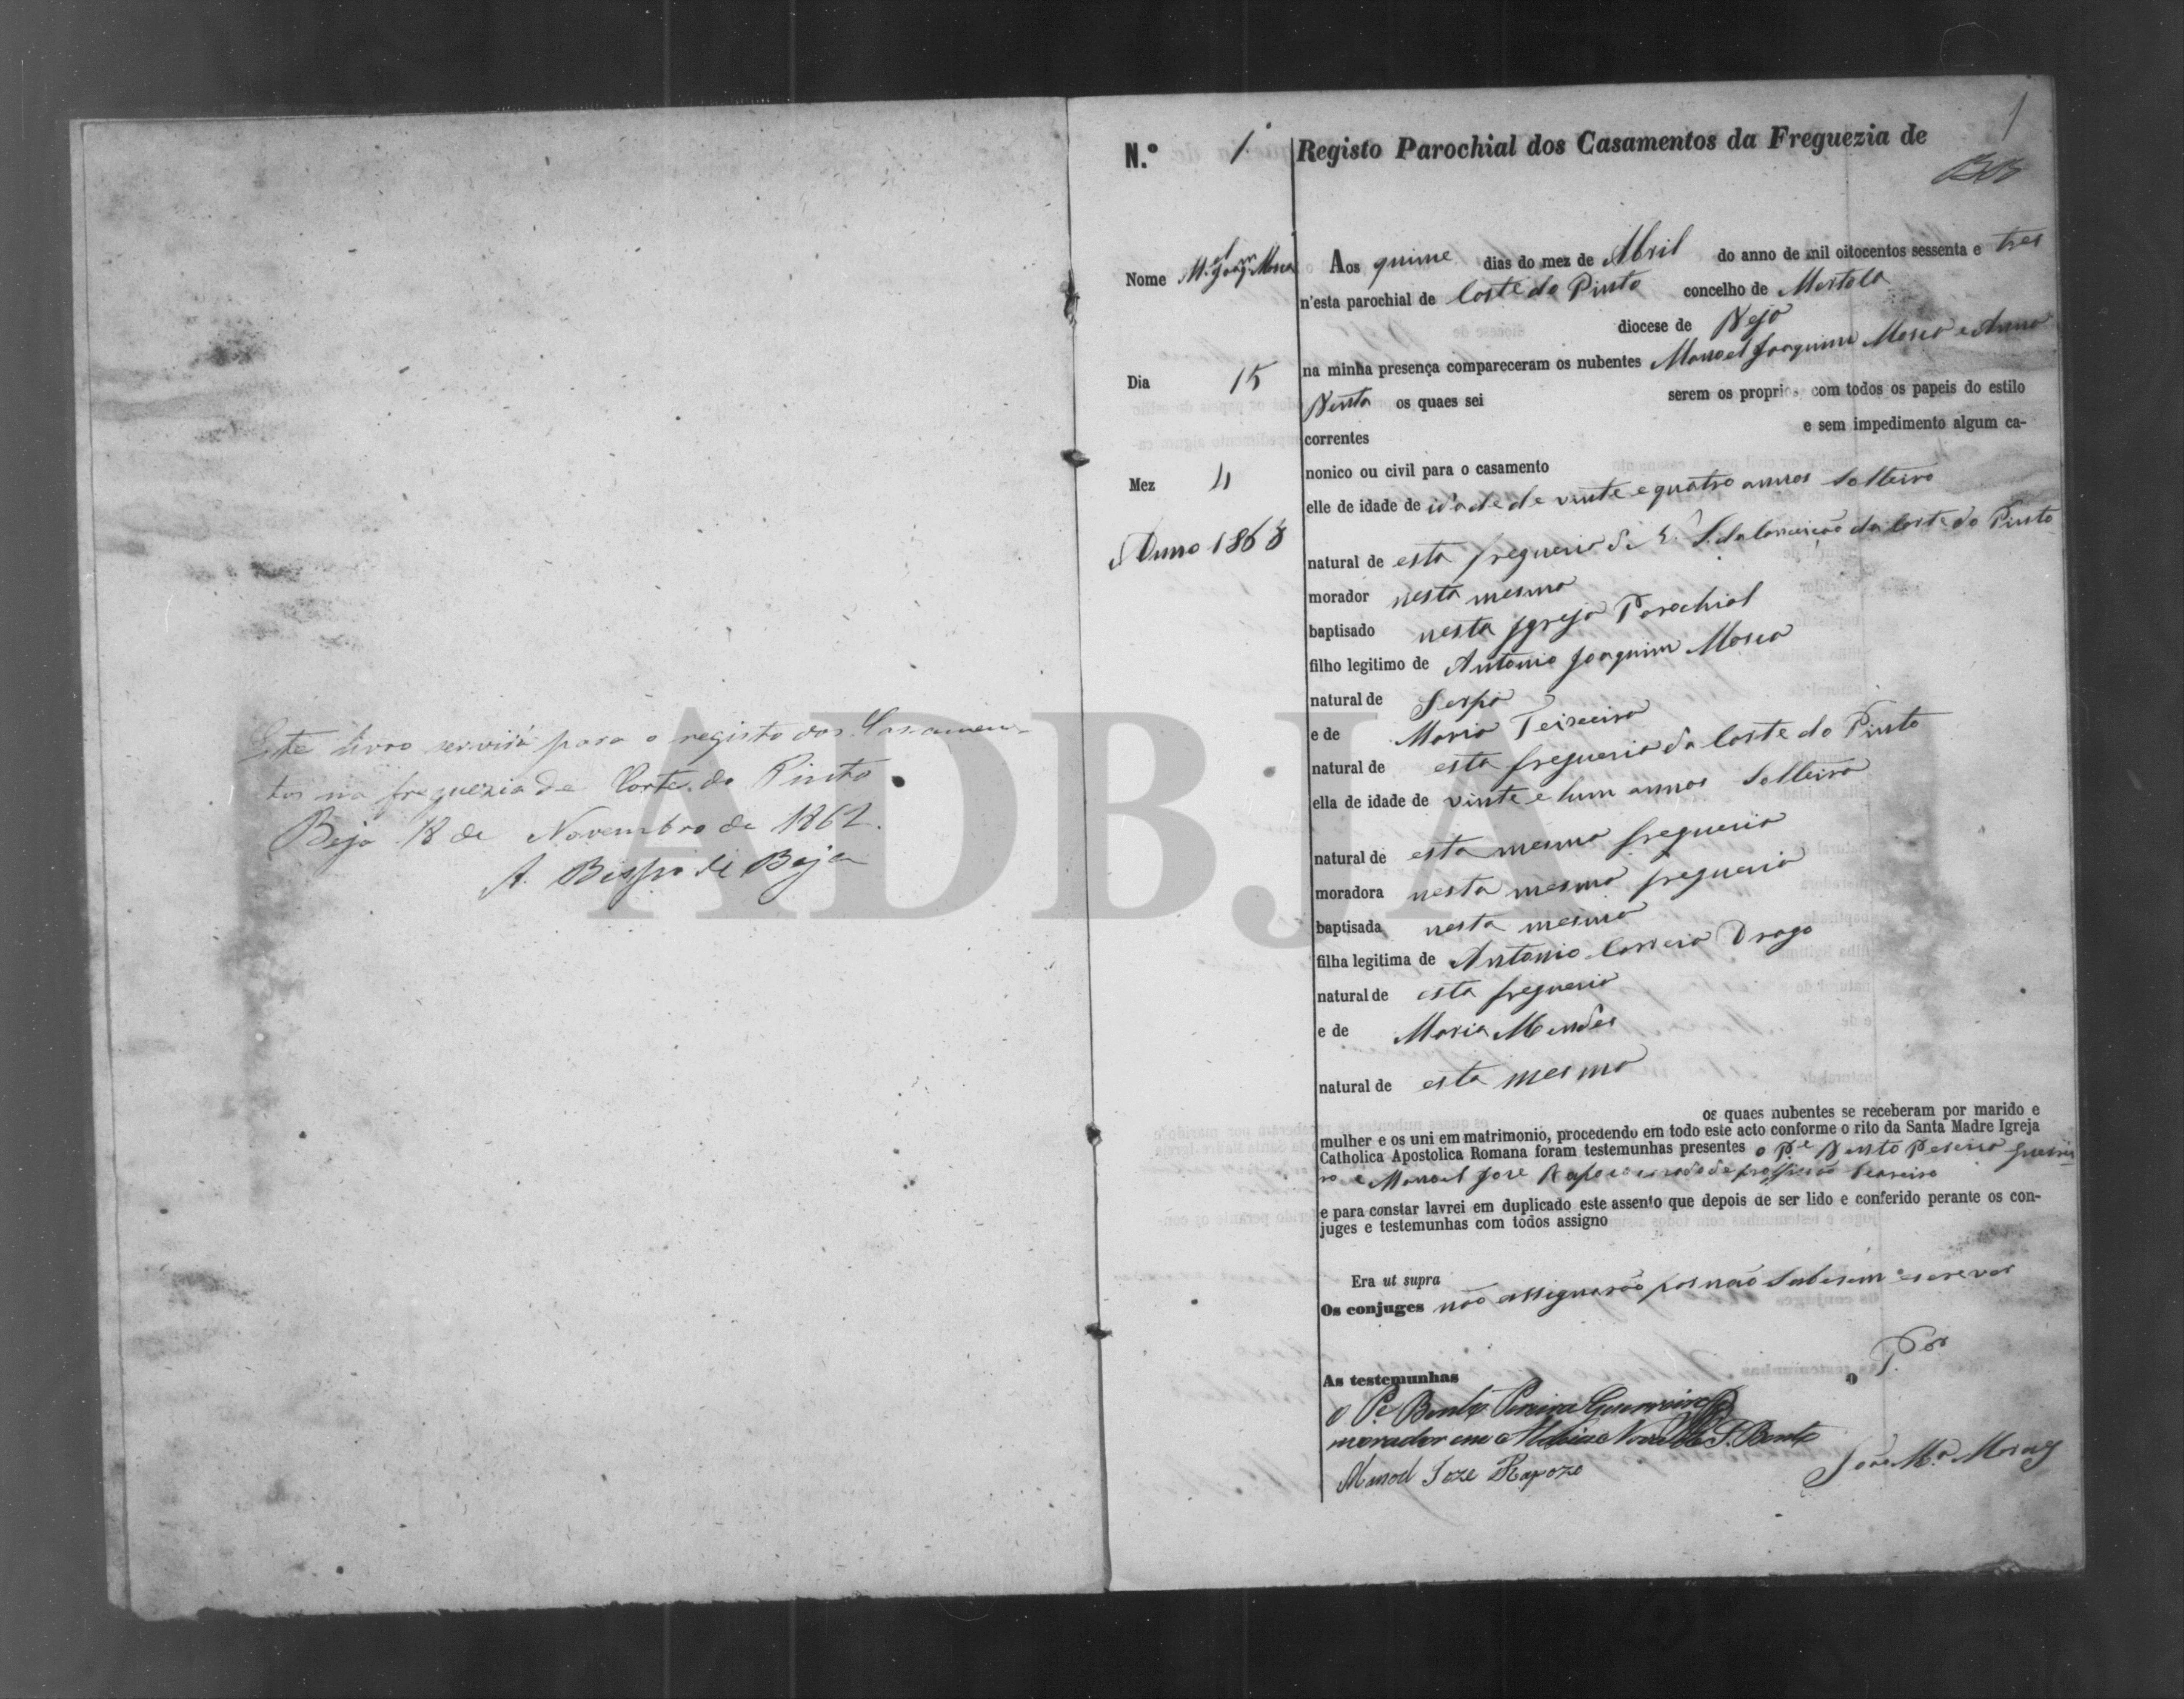 Este livro servirá para o registo dos Casamen-
tos na freguezia de Corte do Pinto
Beja 18 de Novembro de 1862.
A. Bispo de Beja
ADBJA
1
N.º 1. Registo Parochial dos Casamentos da Freguezia de
Nome M.el Joaq.m Mosca
Aos quinze dias do mez de Abril do anno de mil oitocentos sessenta e tres
n'esta parochial de Corte do Pinto concelho de Mertola
diocese de Beja
na minha presença compareceram os nubentes Manoel Joaquim Mosca e Anna
Dia 15
Benta os quaes sei serem os proprios, com todos os papeis do estilo
correntes e sem impedimento algum ca-
nonico ou civil para o casamento
Mez 4
elle de idade de idade de vinte e quatro annos Solteiro
Anno 1863
natural de esta freguezia de N. S. da Conceição da Corte do Pinto
morador nesta mesma
baptisado nesta Igreja Parochial
filho legitimo de Antonio Joaquim Mosca
natural de Serpa
e de Maria Teixeira
natural de esta freguezia da Corte do Pinto
ella de idade de vinte e hum annos Solteira
natural de esta mesma freguezia
moradora nesta mesma freguezia
baptisada nesta mesma
filha legitima de Antonio Correia Drago
natural de esta freguezia
e de Maria Mendes
natural de esta mesma
os quaes nubentes se receberam por marido e
mulher e os uni em matrimonio, procedendo em todo este acto conforme o rito da Santa Madre Igreja
Catholica Apostolica Romana foram testemunhas presentes o P.e Bento Pereira Guerrei-
ro e Manoel Jose Rapozo de profissão
e para constar lavrei em duplicado este assento que depois de ser lido e conferido perante os con-
juges e testemunhas com todos assigno
Era ut supra
Os conjuges não assignarão por não saberem escrever
As testemunhas o P.or
O P.e Bento Pereira Guerreiro
morador em Aldeia Nova de S. Bento
Manoel Joze Rapozo